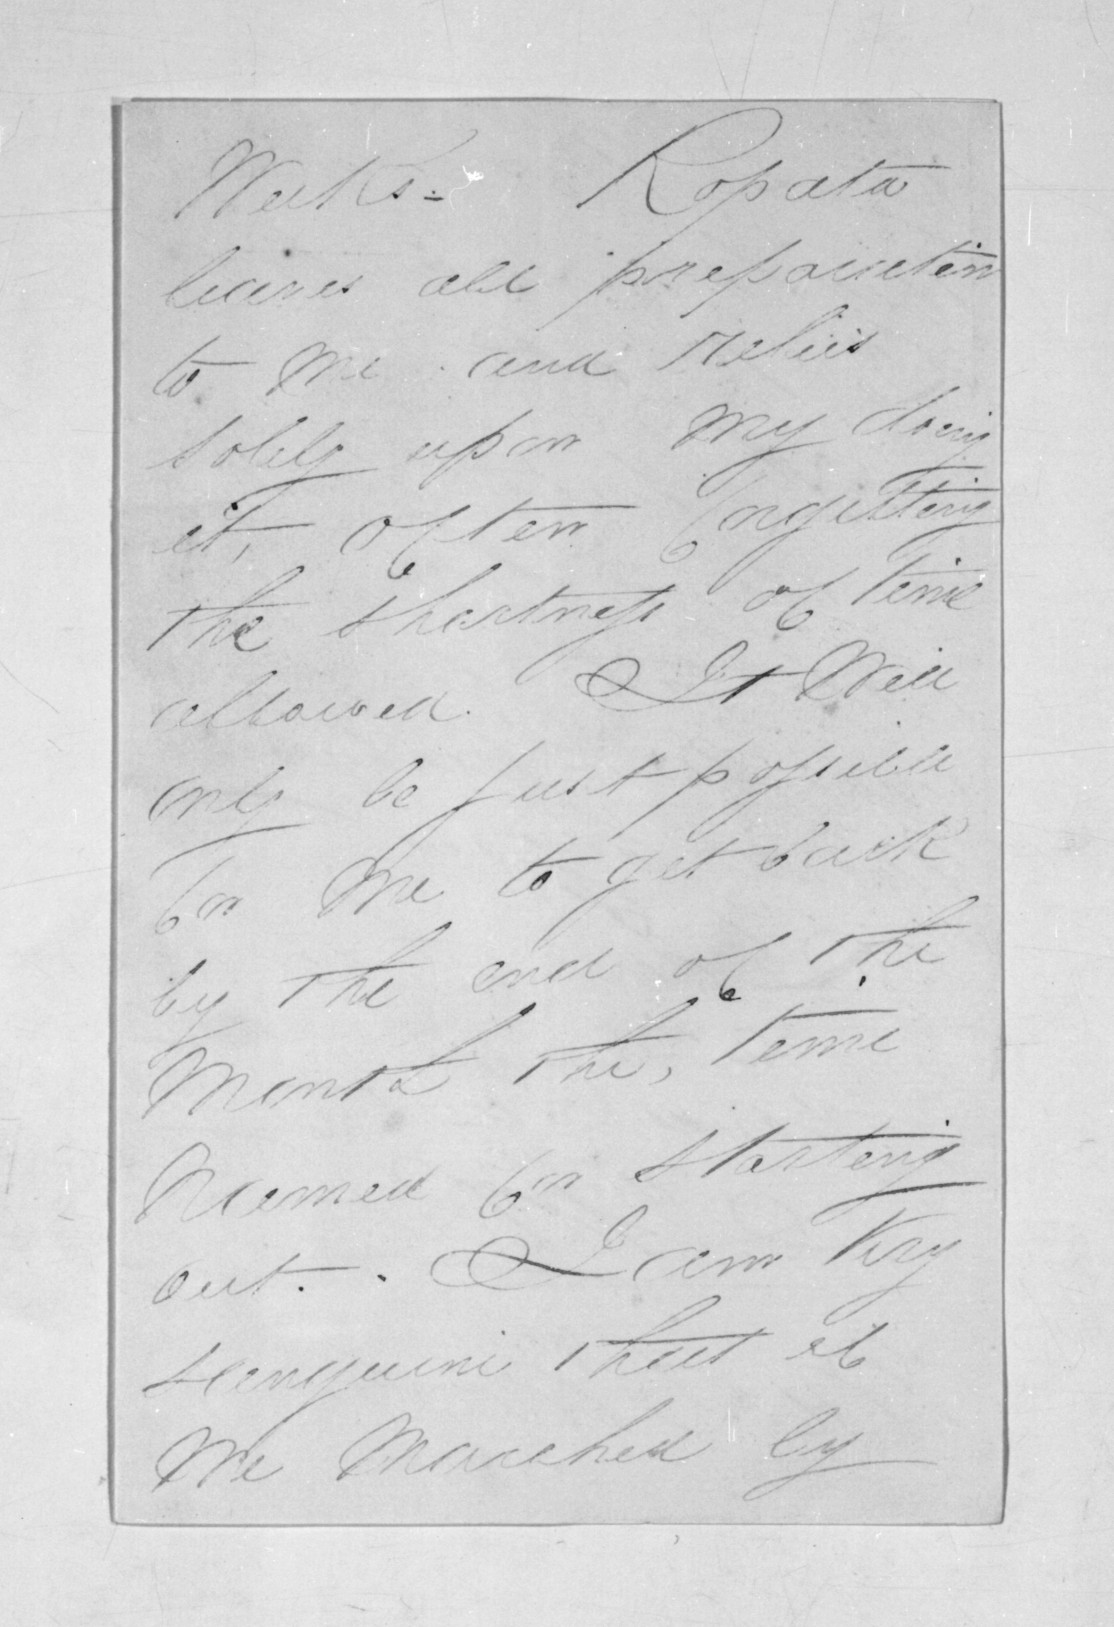 Weeks - Ropata
leaves all preparation
to me and relies
solely upon my doing
it, often forgetting
the shortness of time
allowed. It Will
only be just possible
for Me to get back
by the end of the
Month the, time
Named for starting
out. . I am Very
sanguine that if
We Marched by